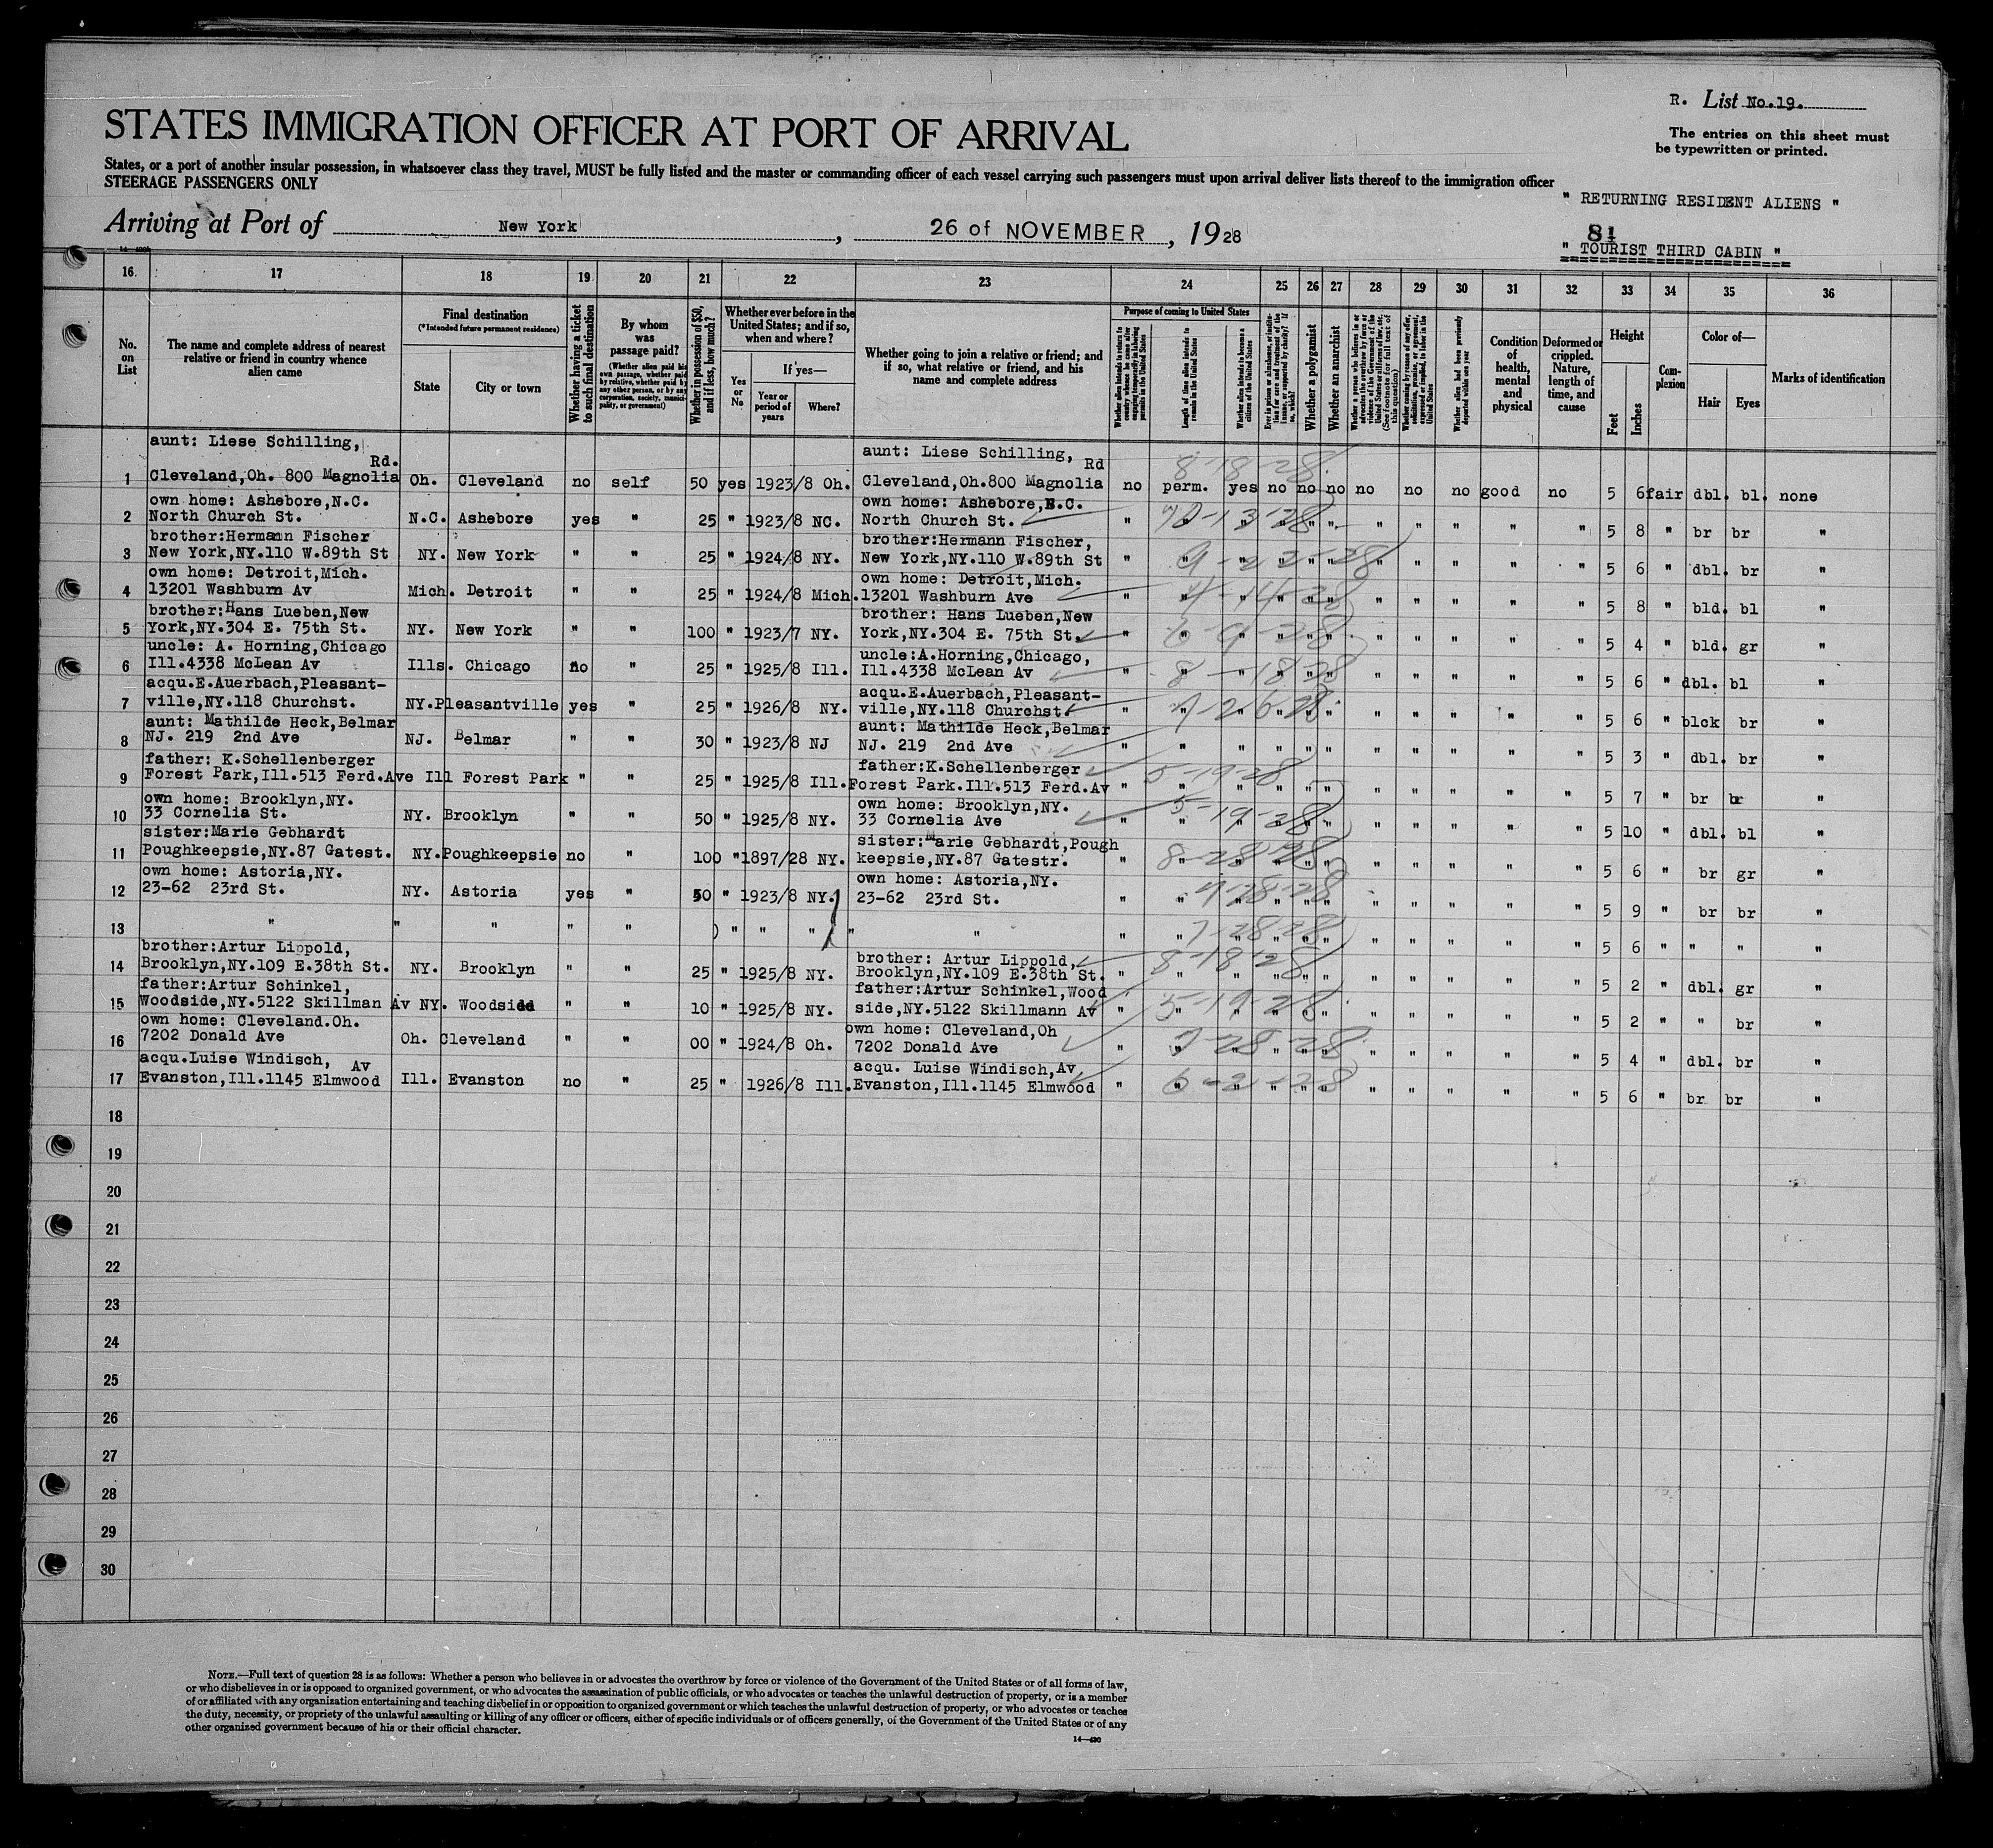 R. List No.19.
STATES IMMIGRATION OFFICER AT PORT OF ARRIVAL
The entries on this sheet must
be typewritten or printed.
States, or a port of another insular possession, in whatsoever class they travel, MUST be fully listed and the master or commanding officer of each vessel carrying such passengers must upon arrival deliver lists thereof to the immigration officer
STEERAGE PASSENGERS ONLY
" RETURNING RESIDENT ALIENS "
Arriving at Port of New York , 26 of NOVEMBER , 1928
81
" TOURIST THIRD CABIN "
16 17 18 19 20 21 22 23 24 25 26 27 28 29 30 31 32 33 34 35 36
No. on List
The name and complete address of nearest relative or friend in country whence alien came
Final destination
(*Intended future permanent residence)
State City or town
Whether having a ticket to such final destination
By whom was passage paid?
(Whether alien paid his own passage, whether paid by relative, whether paid by any other person, or by any corporation, society, municipality, or government)
Whether in possession of $50, and if less, how much?
Whether ever before in the United States; and if so, when and where?
Yes or No
If yes—
Year or period of years Where?
Whether going to join a relative or friend; and if so, what relative or friend, and his name and complete address
Purpose of coming to United States
Length of time alien intends to remain in the United States
Whether alien intends to become a citizen of the United States
Whether a polygamist
Whether an anarchist
Whether alien had been previously deported within one year
Condition of health, mental and physical
Deformed or crippled. Nature, length of time, and cause
Height
Feet Inches
Complexion
Color of—
Hair Eyes
Marks of identification
aunt: Liese Schilling, Rd. aunt: Liese Schilling, Rd 8-18-28
1 Cleveland,Oh. 800 Magnolia Oh. Cleveland no self 50 yes 1923/8 Oh. Cleveland,Oh.800 Magnolia no perm. yes no no no no no no good no 5 6 fair dbl. bl. none
own home: Ashebore,N.C. own home: Ashebore,N.C.
2 North Church St. N.C. Ashebore yes " 25 " 1923/8 NC. North Church St. " 10-13-28 " " " " " " " " " 5 8 " br br "
brother:Hermann Fischer brother:Hermann Fischer,
3 New York,NY.110 W.89th St NY. New York " " 25 " 1924/8 NY. New York,NY.110 W.89th St " 9-22-28 " " " " " " " " " 5 6 " dbl. br "
own home: Detroit,Mich. own home: Detroit,Mich.
4 13201 Washburn Av Mich. Detroit " " 25 " 1924/8 Mich. 13201 Washburn Ave " " " " " " " " " " " 5 8 " bld. bl "
brother:Hans Lueben,New brother: Hans Lueben,New
5 York,NY.304 E. 75th St. NY. New York " " 100 " 1923/7 NY. York,NY.304 E. 75th St. " " " " " " " " " " " 5 4 " bld. gr "
uncle: A. Horning,Chicago uncle:A.Horning,Chicago,
6 Ill.4338 McLean Av Ills. Chicago no " 25 " 1925/8 Ill. Ill.4338 McLean Av " 8-18-28 " " " " " " " " " 5 6 " dbl. bl "
acqu.E.Auerbach,Pleasant- acqu.E.Auerbach,Pleasant-
7 ville,NY.118 Churchst. NY. Pleasantville yes " 25 " 1926/8 NY. ville,NY.118 Churchst. " " " " " " " " " " " 5 6 " blck br "
aunt: Mathilde Heck,Belmar aunt: Mathilde Heck,Belmar
8 NJ. 219 2nd Ave NJ. Belmar " " 30 " 1923/8 NJ NJ. 219 2nd Ave " " " " " " " " " " " 5 3 " dbl. br "
father: K.Schellenberger father:K.Schellenberger
9 Forest Park,Ill.513 Ferd.Ave Ill Forest Park " " 25 " 1925/8 Ill. Forest Park.Ill.513 Ferd.Av " 5-19-28 " " " " " " " " " 5 7 " br br "
own home: Brooklyn,NY. own home: Brooklyn,NY.
10 33 Cornelia St. NY. Brooklyn " " 50 " 1925/8 NY. 33 Cornelia Ave " 5-19-28 " " " " " " " " " 5 10 " dbl. bl "
sister:Marie Gebhardt sister:Marie Gebhardt,Pough
11 Poughkeepsie,NY.87 Gatest. NY. Poughkeepsie no " 100 " 1897/28 NY. keepsie,NY.87 Gatestr. " 8-28-28 " " " " " " " " " 5 6 " br gr "
own home: Astoria,NY. own home: Astoria,NY.
12 23-62 23rd St. NY. Astoria yes " 50 " 1923/8 NY. 23-62 23rd St. " " " " " " " " " " " 5 9 " br br "
13 " " " " " ) " " " " " " 7-28-28 " " " " " " " " " 5 6 " " " "
brother:Artur Lippold, brother: Artur Lippold,
14 Brooklyn,NY.109 E.38th St. NY. Brooklyn " " 25 " 1925/8 NY. Brooklyn,NY.109 E.38th St. " 8-18-28 " " " " " " " " " 5 2 " dbl. gr "
father:Artur Schinkel, father:Artur Schinkel,Wood
15 Woodside,NY.5122 Skillman Av NY. Woodside " " 10 " 1925/8 NY. side,NY.5122 Skillmann Av " 5-19-28 " " " " " " " " " 5 2 " " br "
own home: Cleveland.Oh. own home: Cleveland,Oh
16 7202 Donald Ave Oh. Cleveland " " 00 " 1924/8 Oh. 7202 Donald Ave " " " " " " " " " " " 5 4 " dbl. br "
acqu.Luise Windisch, Av acqu. Luise Windisch,Av
17 Evanston,Ill.1145 Elmwood Ill. Evanston no " 25 " 1926/8 Ill. Evanston,Ill.1145 Elmwood " 6-2-28 " " " " " " " " " 5 6 " br br "
18
19
20
21
22
23
24
25
26
27
28
29
30
NOTE.—Full text of question 28 is as follows: Whether a person who believes in or advocates the overthrow by force or violence of the Government of the United States or of all forms of law,
or who disbelieves in or is opposed to organized government, or who advocates the assassination of public officials, or who advocates or teaches the unlawful destruction of property, or is a member
of or affiliated with any organization entertaining and teaching disbelief in or opposition to organized government or which teaches the unlawful destruction of property, or who advocates or teaches
the duty, necessity, or propriety of the unlawful assaulting or killing of any officer or officers, either of specific individuals or of officers generally, of the Government of the United States or of any
other organized government because of his or their official character.
14—420